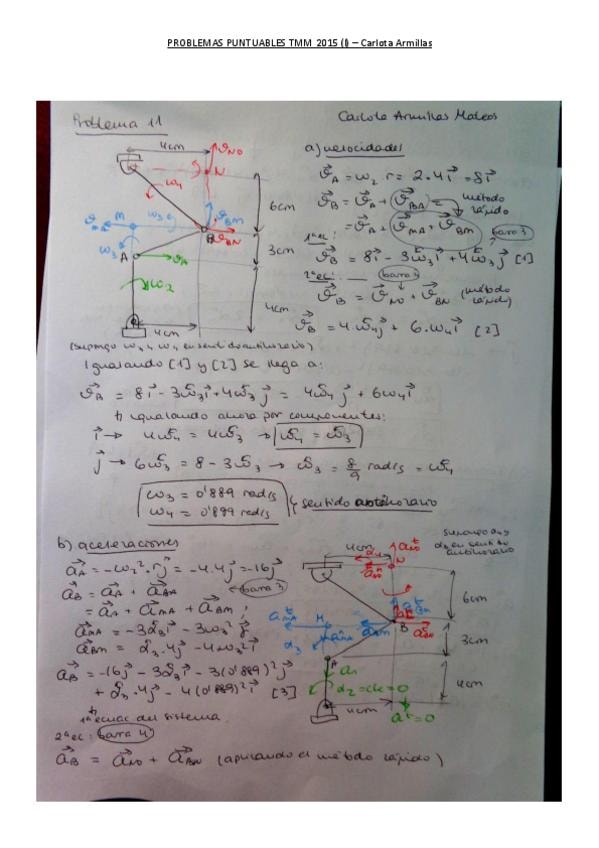 PROBLEMAS PUNTUABLES TMM 2015 (I) – Carlota Armillas
Problema 11
Carlota Armillas Mateos
4cm
a) velocidades
v_A = ω₂·r = 2·4i = 8i
v_B = v_A + v_BA → método rápido
= v_A + v_MA + v_BM barra 3
1ª ec:
v_B = 8i - 3ω₃i + 4ω₃j [1]
2ª ec: barra 4
v_B = v_NO + v_BN (método rápido)
v_B = 4·ω₄j + 6·ω₄i [2]
v_NO
N
ω₄
6cm
v_MA
M
ω₃
v_BM
B
v_BN
3cm
A
v_A
ω₂
4cm
4cm
(Supongo ω₃ y ω₄ en sentido antihorario)
Igualando [1] y [2] se llega a:
v_A = 8i - 3ω₃i + 4ω₃j = 4ω₄j + 6ω₄i
igualando ahora por componentes:
i → 4ω₄ = 4ω₃ → ω₄ = ω₃
j → 6ω₃ = 8 - 3ω₃ → ω₃ = 8/9 rad/s = ω₄
ω₃ = 0'889 rad/s
ω₄ = 0'889 rad/s
sentido antihorario
b) aceleraciones
a_A = -ω₂²·rj = -4·4j = -16j
a_B = a_A + a_BA barra 3
= a_A + a_MA + a_BM ;
a_MA = -3α₃i - 3ω₃²j
a_BM = α₃·4j - 4ω₃²i
a_B = -16j - 3α₃i - 3(0'889)²j
+ α₃·4j - 4(0'889)²i [3]
1ª ecuac del sistema
2ª ec: barra 4
a_B = a_NO + a_BN (aplicando el método rápido)
Supongo α₄ y α₃ en sentido antihorario
4cm
α₄
N
6cm
M
B
α₃
3cm
A
α₂ = cte = 0
4cm
4cm
aᵗ = 0